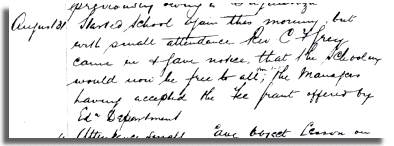 previously owing to
August 31 Started School again this morning, but
with small attendance Rev C Frey
came in & gave notice, that the School
would now be free to all; the Managers
having accepted the Fee grant offered by
Edn Department
Attendance small Gave Object Lesson on